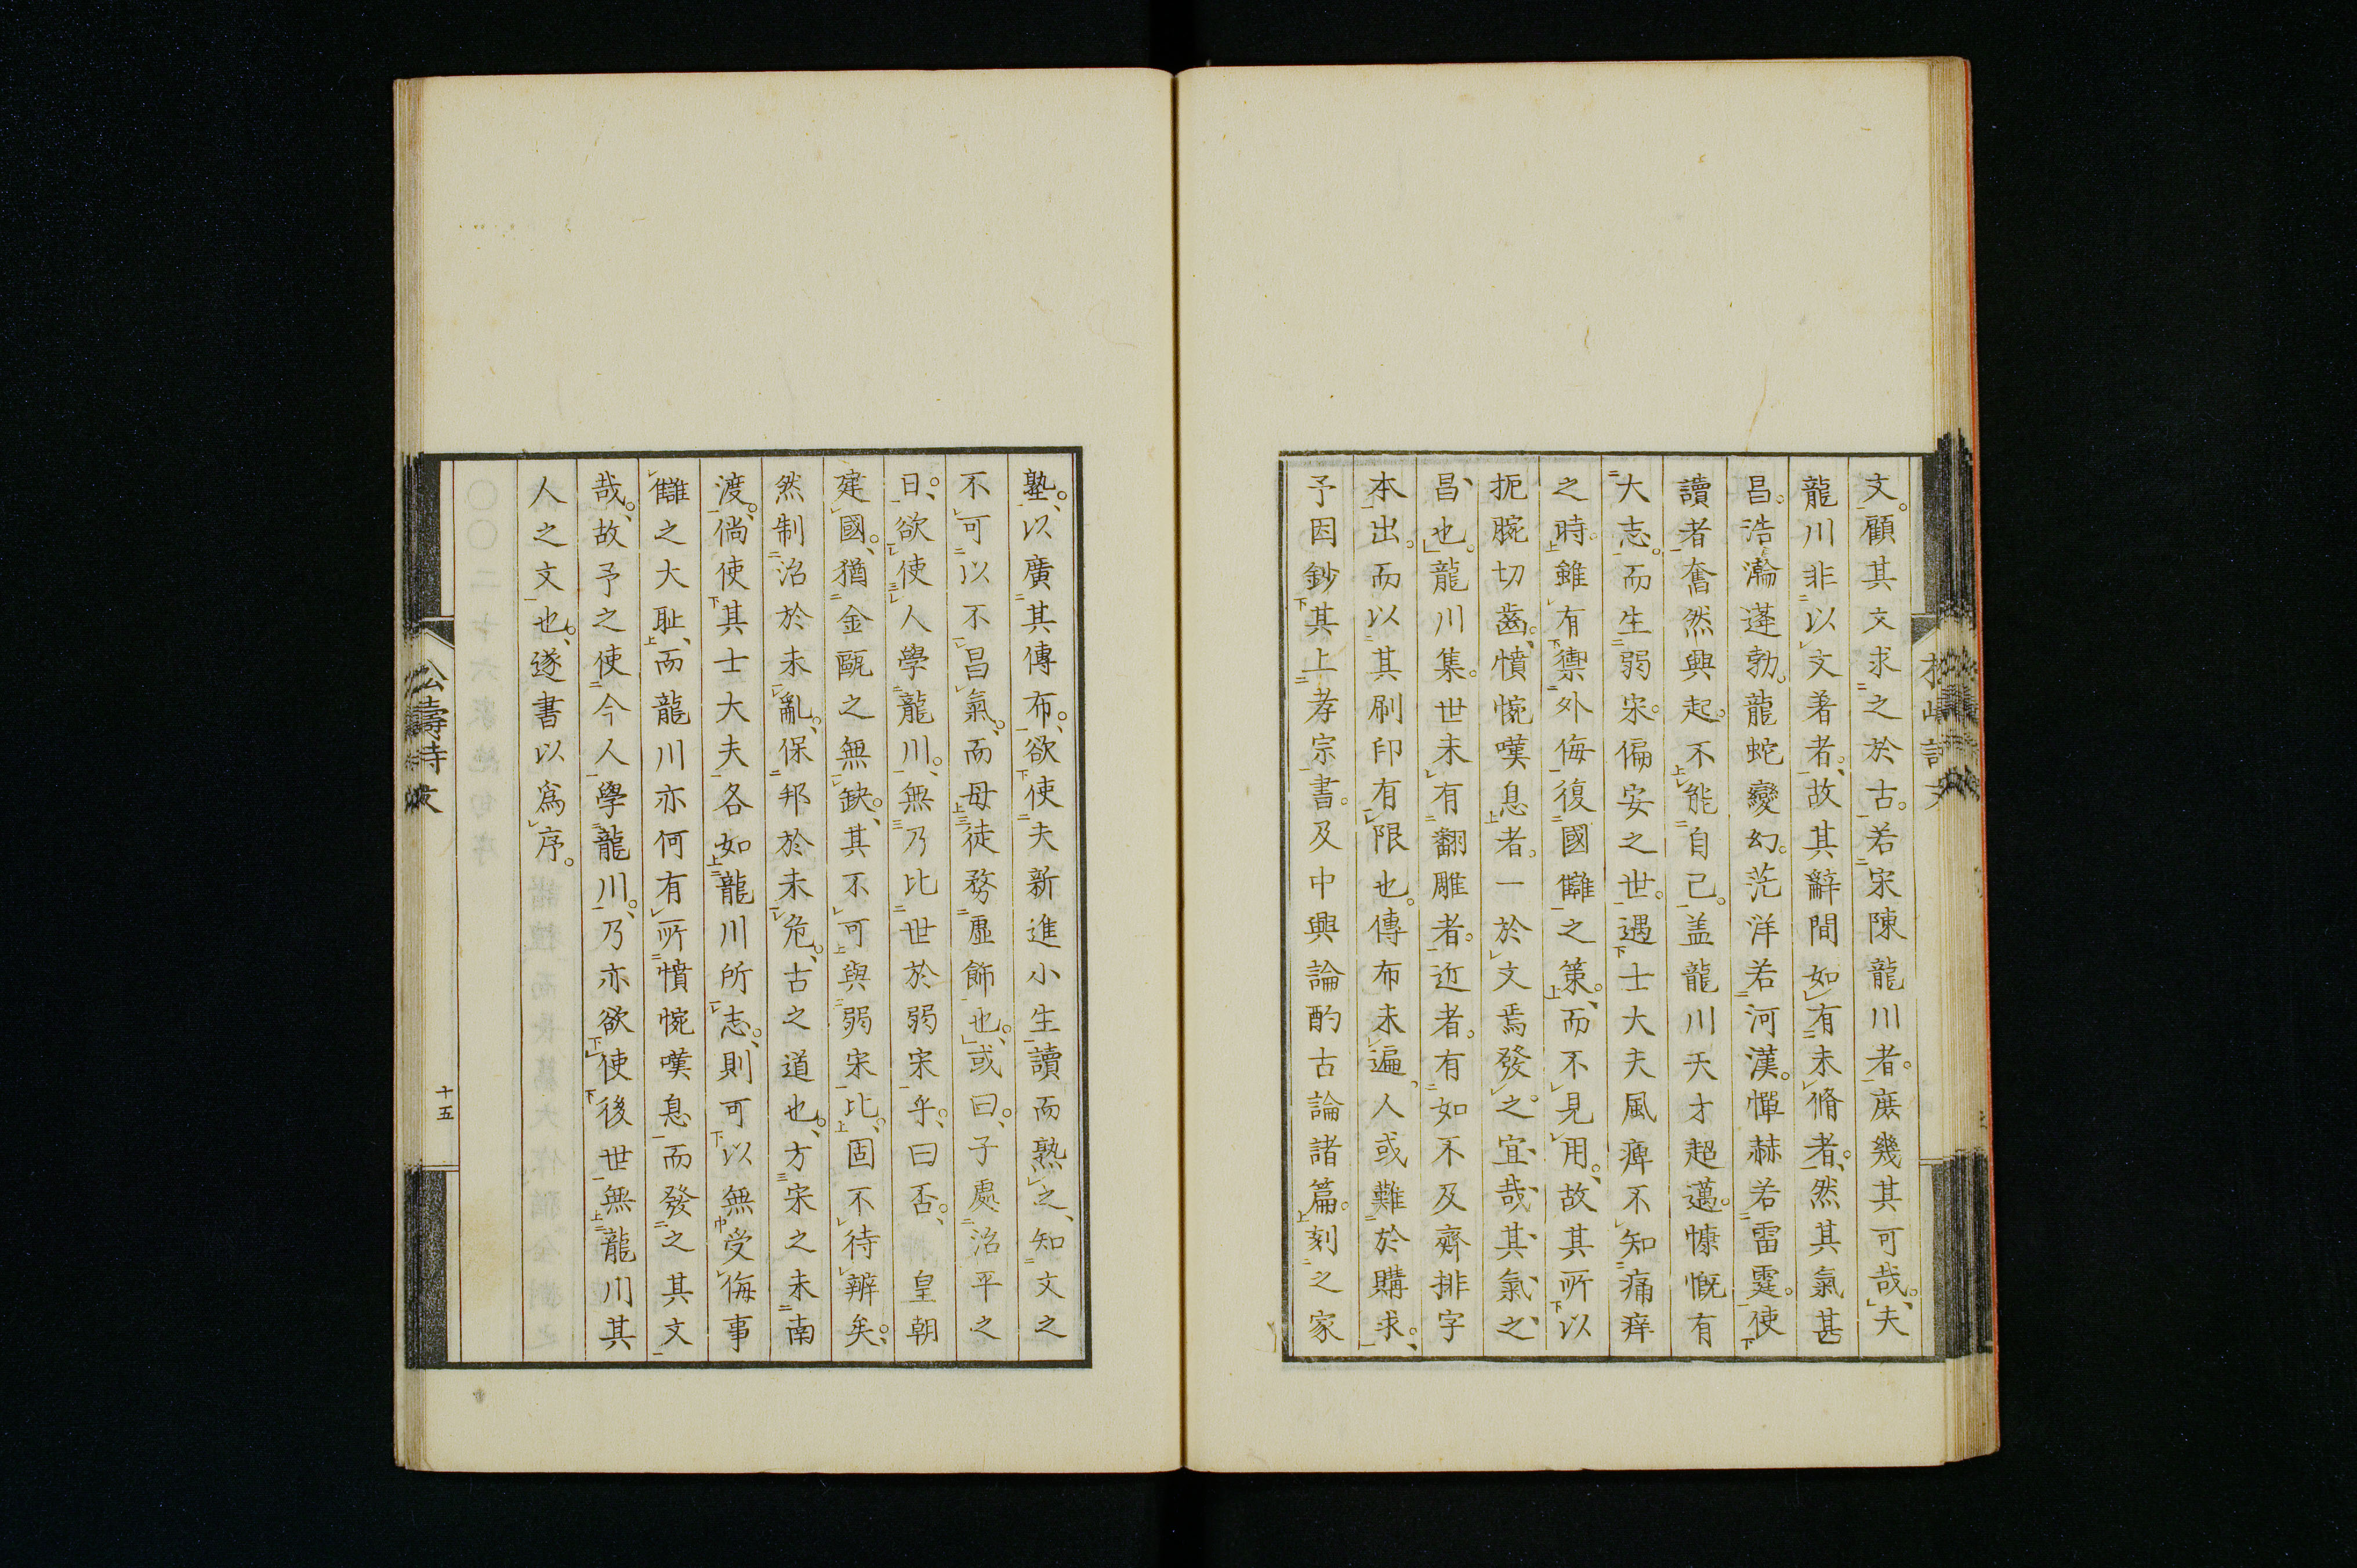 文。顧其文求之於古。若宋陳龍川者。庶幾其可哉。夫
龍川非以文著者。故其辭間如有未脩者。然其氣甚
昌。浩瀚蓬勃。龍蛇變幻。茫洋若河漢。憚赫若雷霆。使
讀者奮然興起。不能自己。盖龍川天才超邁。慷慨有
大志。而生弱宋。偏安之世。遇士大夫風痺不知痛痒
之時。雖有禦外侮復國讎之策。而不見用。故其所以
扼腕切齒。憤惋嘆息者。一於文焉發之。宜哉其氣之
昌也。龍川集。世未有翻雕者。近者。有如不及齋排字
本出。而以其刷印有限也。傳布未遍、人或難於購求。
予因鈔其上孝宗書。及中興論酌古論諸篇。刻之家
塾。以廣其傳布。欲使夫新進小生讀而熟之、知文之
不可以不昌氣。而毋徒務虛飾也。或曰。子處治平之
日。欲使人學龍川。無乃比世於弱宋乎。曰否。皇朝
建國。猶金甌之無缺。其不可與弱宋比。固不待辨矣。
然制治於未亂。保邦於未危。古之道也。方宋之未南
渡。倘使其士大夫各如龍川所志。則可以無受侮事
讎之大耻、而龍川亦何有所憤惋嘆息而發之其文
哉。故予之使今人學龍川。乃亦欲使後世無龍川其
人之文也。遂書以爲序。
十五